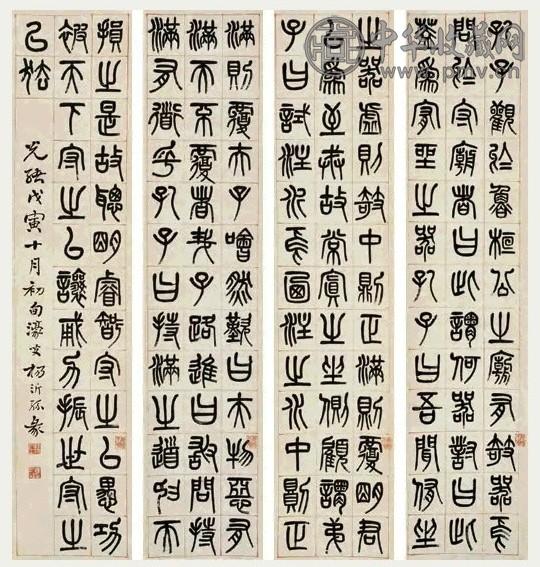 孔子觀於魯桓公之廟有欹器焉
問於守廟者曰此謂何器對曰此
蓋為宥坐之器孔子曰吾聞宥坐
之器虛則欹中則正滿則覆明君
以為至誡故常寘之坐側顧謂弟
子曰試注水焉乃注之水中則正
滿則覆夫子喟然歎曰夫物惡有
滿而不覆者哉子路進曰敢問持
滿有道乎孔子曰持滿之道抑而
損之是故聰明睿智守之以愚功
被天下守之以讓勇力振世守之
以怯
光緒戊寅十月初旬濠叟楊沂孫篆
中华收藏网
www.pmv.cn